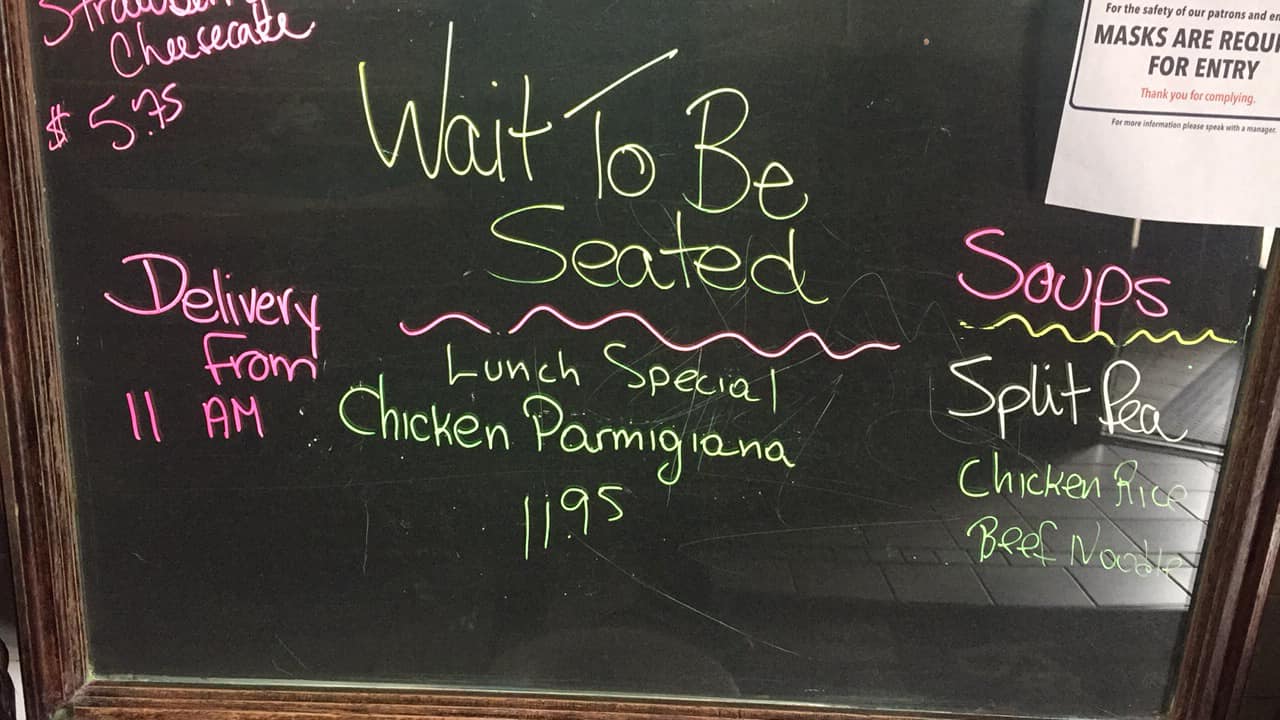 Strawberry
Cheesecake
$5.75
Wait To Be
Seated
Delivery
From
11 AM
Lunch Special
Chicken Parmigiana
11.95
Soups
Split Pea
Chicken Rice
Beef Noodle
For the safety of our patrons and
MASKS ARE
FOR ENTRY
Thank you for complying.
For more information please speak with a manager.